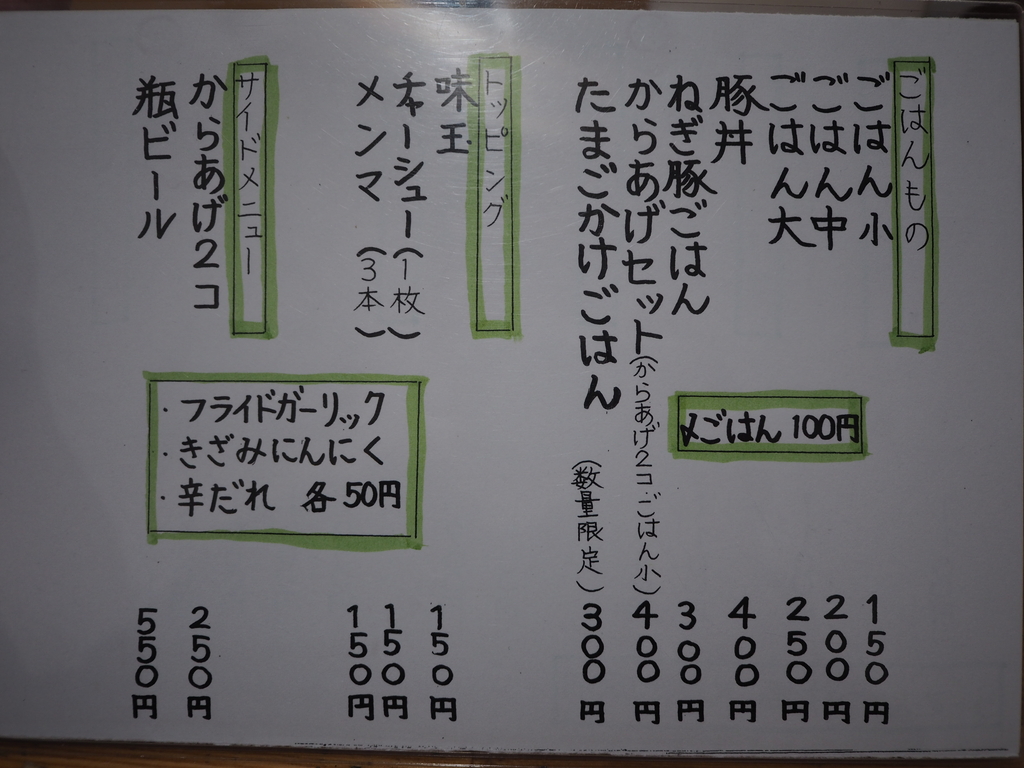 ごはんもの
ごはん小 150円
ごはん中 200円
ごはん大 250円
豚丼 400円
ねぎ豚ごはん 300円
からあげセット(からあげ2コ ごはん小) 400円
たまごかけごはん (数量限定) 300円
〆ごはん 100円
トッピング
味玉 150円
チャーシュー(1枚) 150円
メンマ (3本) 150円
サイドメニュー
からあげ2コ 250円
瓶ビール 550円
・フライドガーリック
・きざみにんにく
・辛だれ 各50円